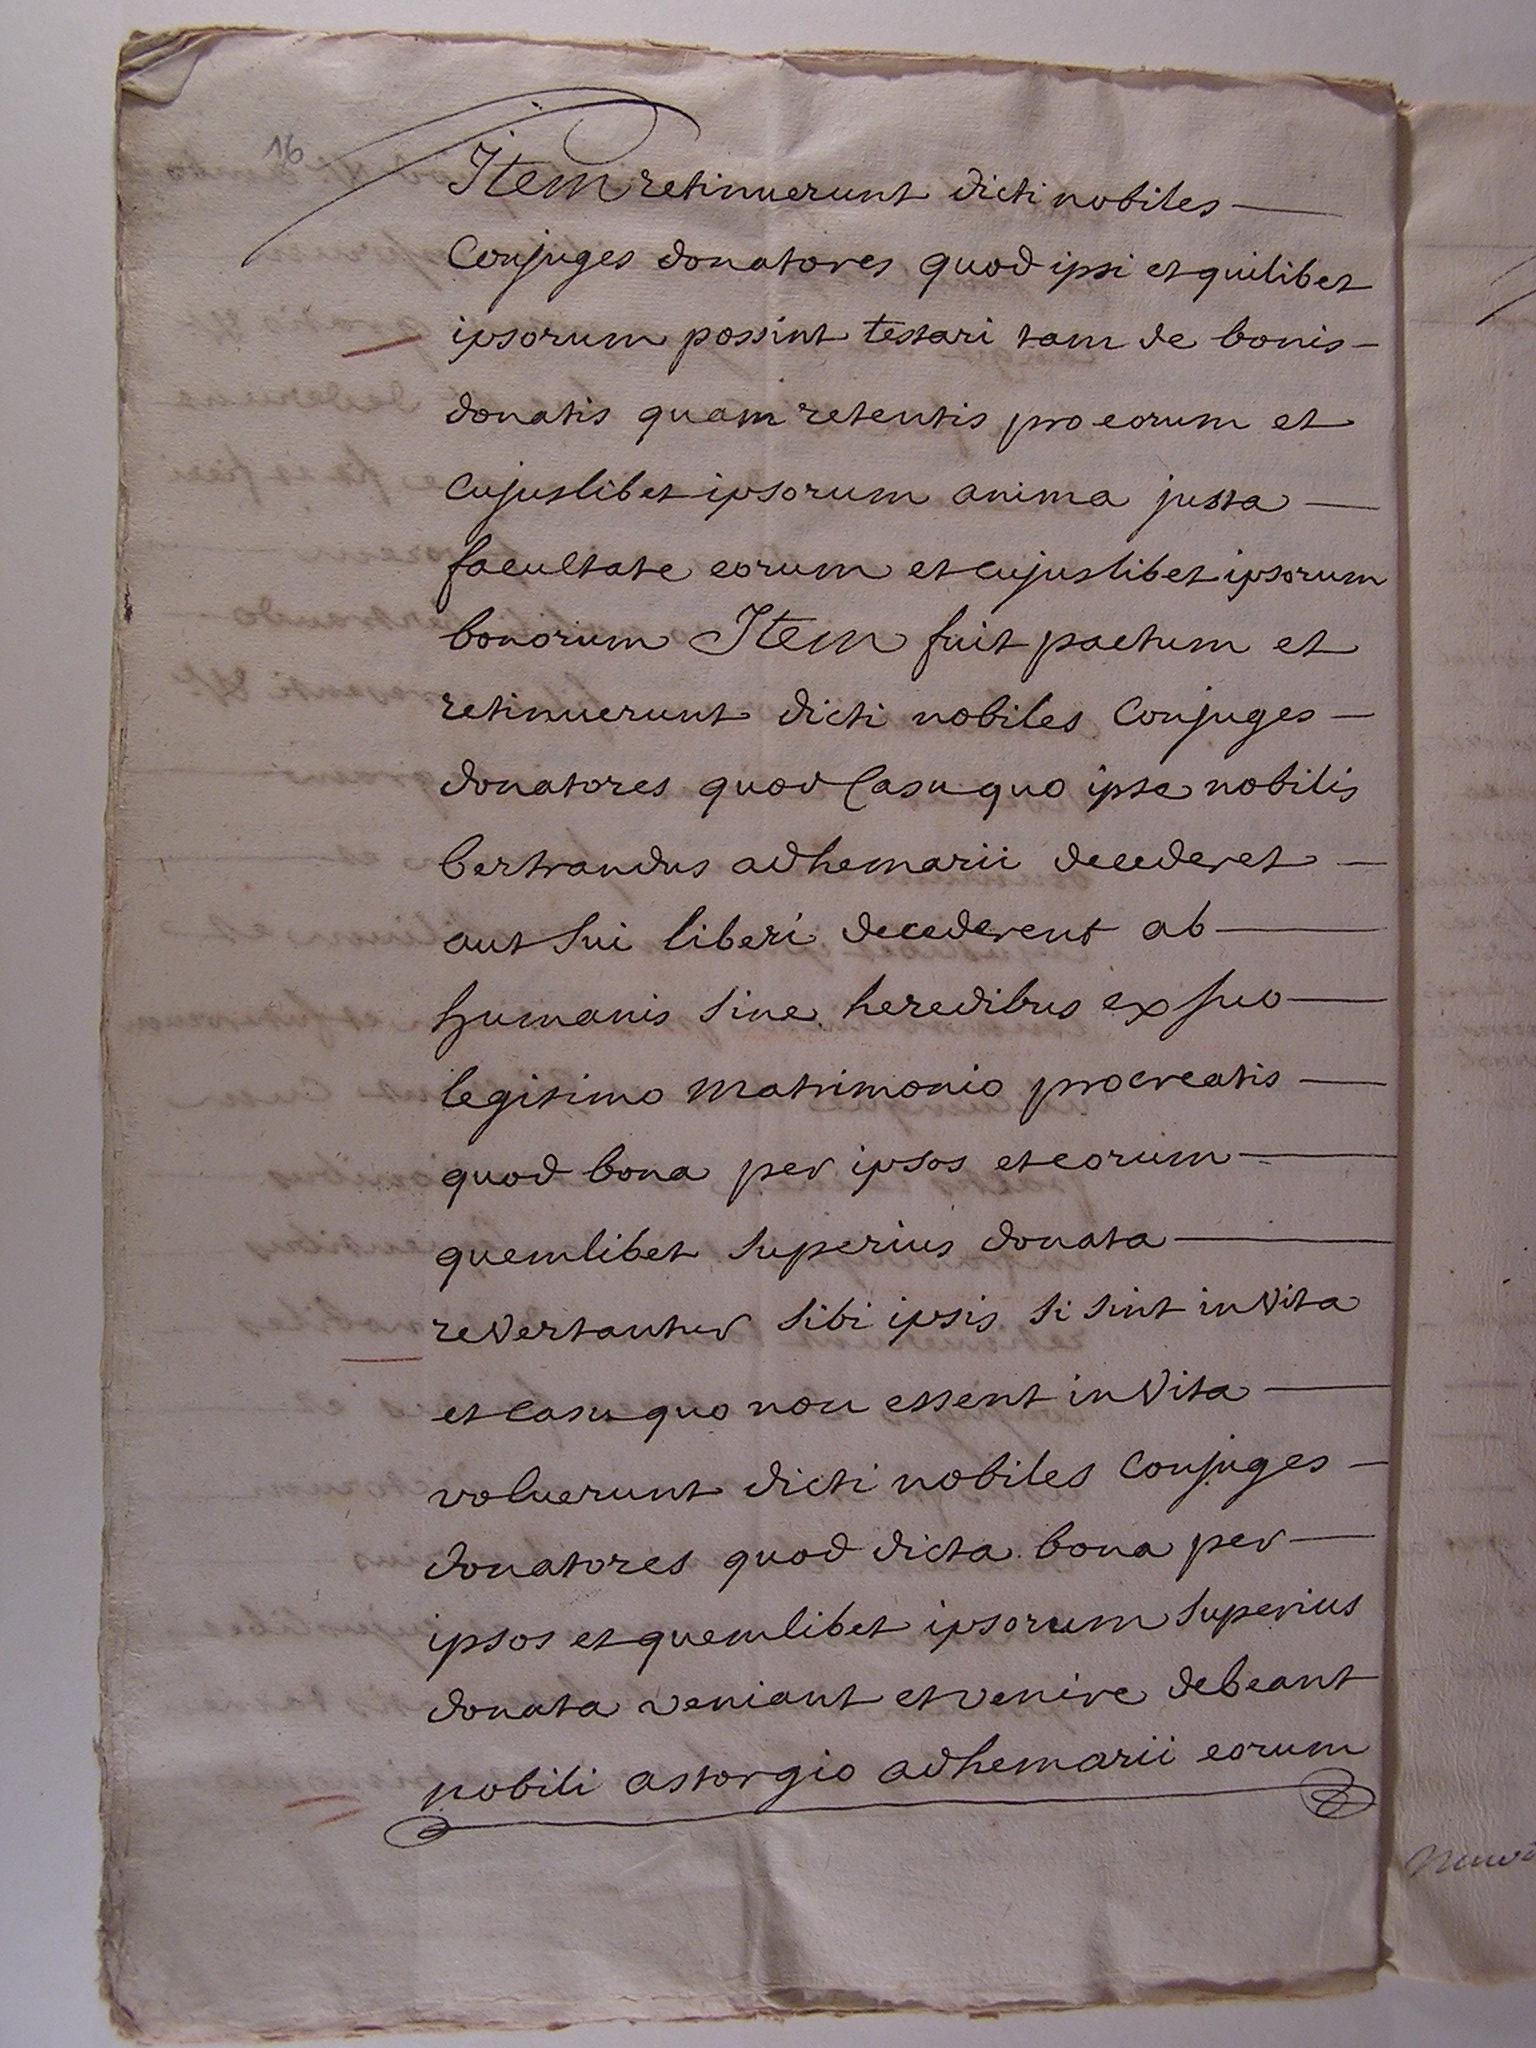 16
Item retinuerunt dicti nobiles
Conjuges donatores quod ipsi et quilibet
ipsorum possint testari tam de bonis
donatis quam retentis pro eorum et
cujuslibet ipsorum anima justa
facultate eorum et cujuslibet ipsorum
bonorum Item fuit pactum et
retinuerunt dicti nobiles Conjuges
donatores quod Casu quo ipse nobilis
bertrandus adhemarii decederet
aut sui liberi decederent ab
humanis sine heredibus ex suo
legitimo matrimonio procreatis
quod bona per ipsos et eorum
quemlibet superius donata
revertantur sibi ipsis si sint in vita
et casu quo non essent in vita
voluerunt dicti nobiles Conjuges
donatores quod dicta bona per
ipsos et quemlibet ipsorum superius
donata veniant et venire debeant
nobili astorgio adhemarii eorum